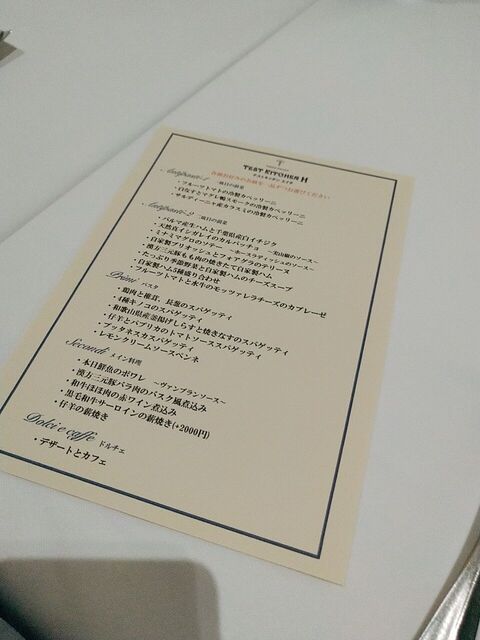 TEST KITCHEN H
テストキッチン エイチ
各種お好きのお皿を一品ずつお選びください
Antipasti-1 一皿目の前菜
・フルーツトマトの冷製カペッリーニ
・白なすとマグレ鴨スモークの冷製カペッリーニ
・サルディーニャ産カラスミの冷製カペッリーニ
Antipasti-2 二皿目の前菜
・パルマ産生ハムと千葉県産白イチジク
・天然真イシガレイのカルパッチョ ～実山椒のソース～
・ミナミマグロのソテー ～ホースラディッシュのソース～
・自家製ブリオッシュとフォアグラのテリーヌ
・漢方三元豚もも肉の焼きたて自家製ハム
・たっぷり季節野菜と自家製ハムのチーズスープ
・自家製ハム5種盛り合わせ
・フルーツトマトと水牛のモッツァレラチーズのカプレーゼ
Primi パスタ
・鶏肉と椎茸、長葱のスパゲッティ
・4種キノコのスパゲッティ
・和歌山県産釜揚げしらすと焼きなすのスパゲッティ
・仔羊とパプリカのトマトソーススパゲッティ
・プッタネスカスパゲッティ
・レモンクリームソースペンネ
Secondi メイン料理
・本日鮮魚のポワレ ～ヴァンブランソース～
・漢方三元豚バラ肉のバスク風煮込み
・和牛ほほ肉の赤ワイン煮込み
・黒毛和牛サーロインの薪焼き(+2000円)
・仔羊の薪焼き
Dolci e caffe ドルチェ
・デザートとカフェ